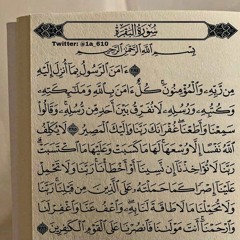 سُورَةُ البَقَرَةِ
Twitter: @1a_610
بِسْمِ اللَّهِ الرَّحْمَٰنِ الرَّحِيمِ
ءَامَنَ الرَّسُولُ بِمَا أُنزِلَ إِلَيْهِ
مِن رَّبِّهِ وَالْمُؤْمِنُونَ كُلٌّ ءَامَنَ بِاللَّهِ وَمَلَٰئِكَتِهِ
وَكُتُبِهِ وَرُسُلِهِ لَا نُفَرِّقُ بَيْنَ أَحَدٍ مِّن رُّسُلِهِ وَقَالُوا
سَمِعْنَا وَأَطَعْنَا غُفْرَانَكَ رَبَّنَا وَإِلَيْكَ الْمَصِيرُ لَا يُكَلِّفُ
اللَّهُ نَفْسًا إِلَّا وُسْعَهَا لَهَا مَا كَسَبَتْ وَعَلَيْهَا مَا اكْتَسَبَتْ
رَبَّنَا لَا تُؤَاخِذْنَا إِن نَّسِينَا أَوْ أَخْطَأْنَا رَبَّنَا وَلَا تَحْمِلْ
عَلَيْنَا إِصْرًا كَمَا حَمَلْتَهُ عَلَى الَّذِينَ مِن قَبْلِنَا رَبَّنَا
وَلَا تُحَمِّلْنَا مَا لَا طَاقَةَ لَنَا بِهِ وَاعْفُ عَنَّا وَاغْفِرْ لَنَا
وَارْحَمْنَا أَنتَ مَوْلَىٰنَا فَانصُرْنَا عَلَى الْقَوْمِ الْكَٰفِرِينَ